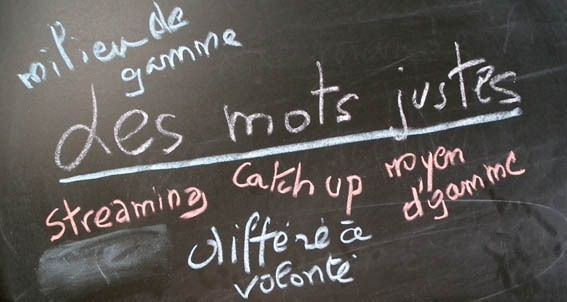 milieu de
gamme
des mots justes
streaming catch up moyen
d'gamme
différé à
volonté